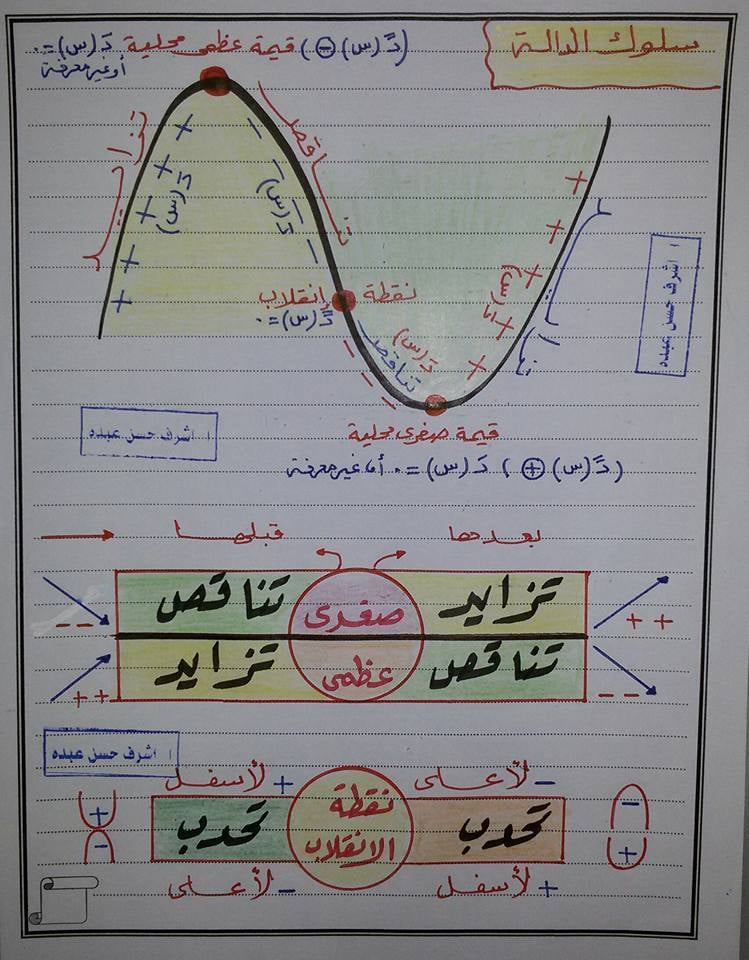 سلوك الدالة
(دً(س) ⊖) قيمة عظمى محلية دَ(س) = ٠
أو غير معرفة
تزايد
+ + + + +
دَ(س)
تناقص
دَ(س)
نقطة إنقلاب
دً(س) = ٠
تناقص
دَ(س)
+ + + + +
دَ(س)
تزايد
ا/ اشرف حسن عبده
قيمة صغرى محلية
(دً(س) ⊕) دَ(س) = ٠ أو غير معرفة
ا/ اشرف حسن عبده
بعدها قبلها
++ تزايد صغرى تناقص --
-- تناقص عظمى تزايد ++
ا/ اشرف حسن عبده
- لأعلى + لأسفل
- تحدب نقطة الانقلاب تحدب +
+ -
+ لأسفل - لأعلى